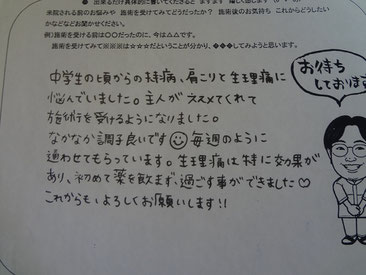 ● 出来るだけ具体的に書いてくださると
来院される前のお悩みや 施術を受けてみてどうだったか？ 施術後のお気持ち これからどうしたい
かなどなどお聞かせください。
例)施術を受ける前は○○だったのに、今は△△です。
施術を受けてみて※※※は☆☆☆だということが分かり、◆◆◆してみようと思います。
中学生の頃からの持病、肩こりと生理痛に
悩んでいました。主人がススメてくれて
施術を受けるようになりました。
なかなか調子良いです☺毎週のように
通わせてもらっています。生理痛は特に効果が
あり、初めて薬を飲まず、過ごす事ができました♡
これからも、よろしくお願いします!!
お待ち
しております